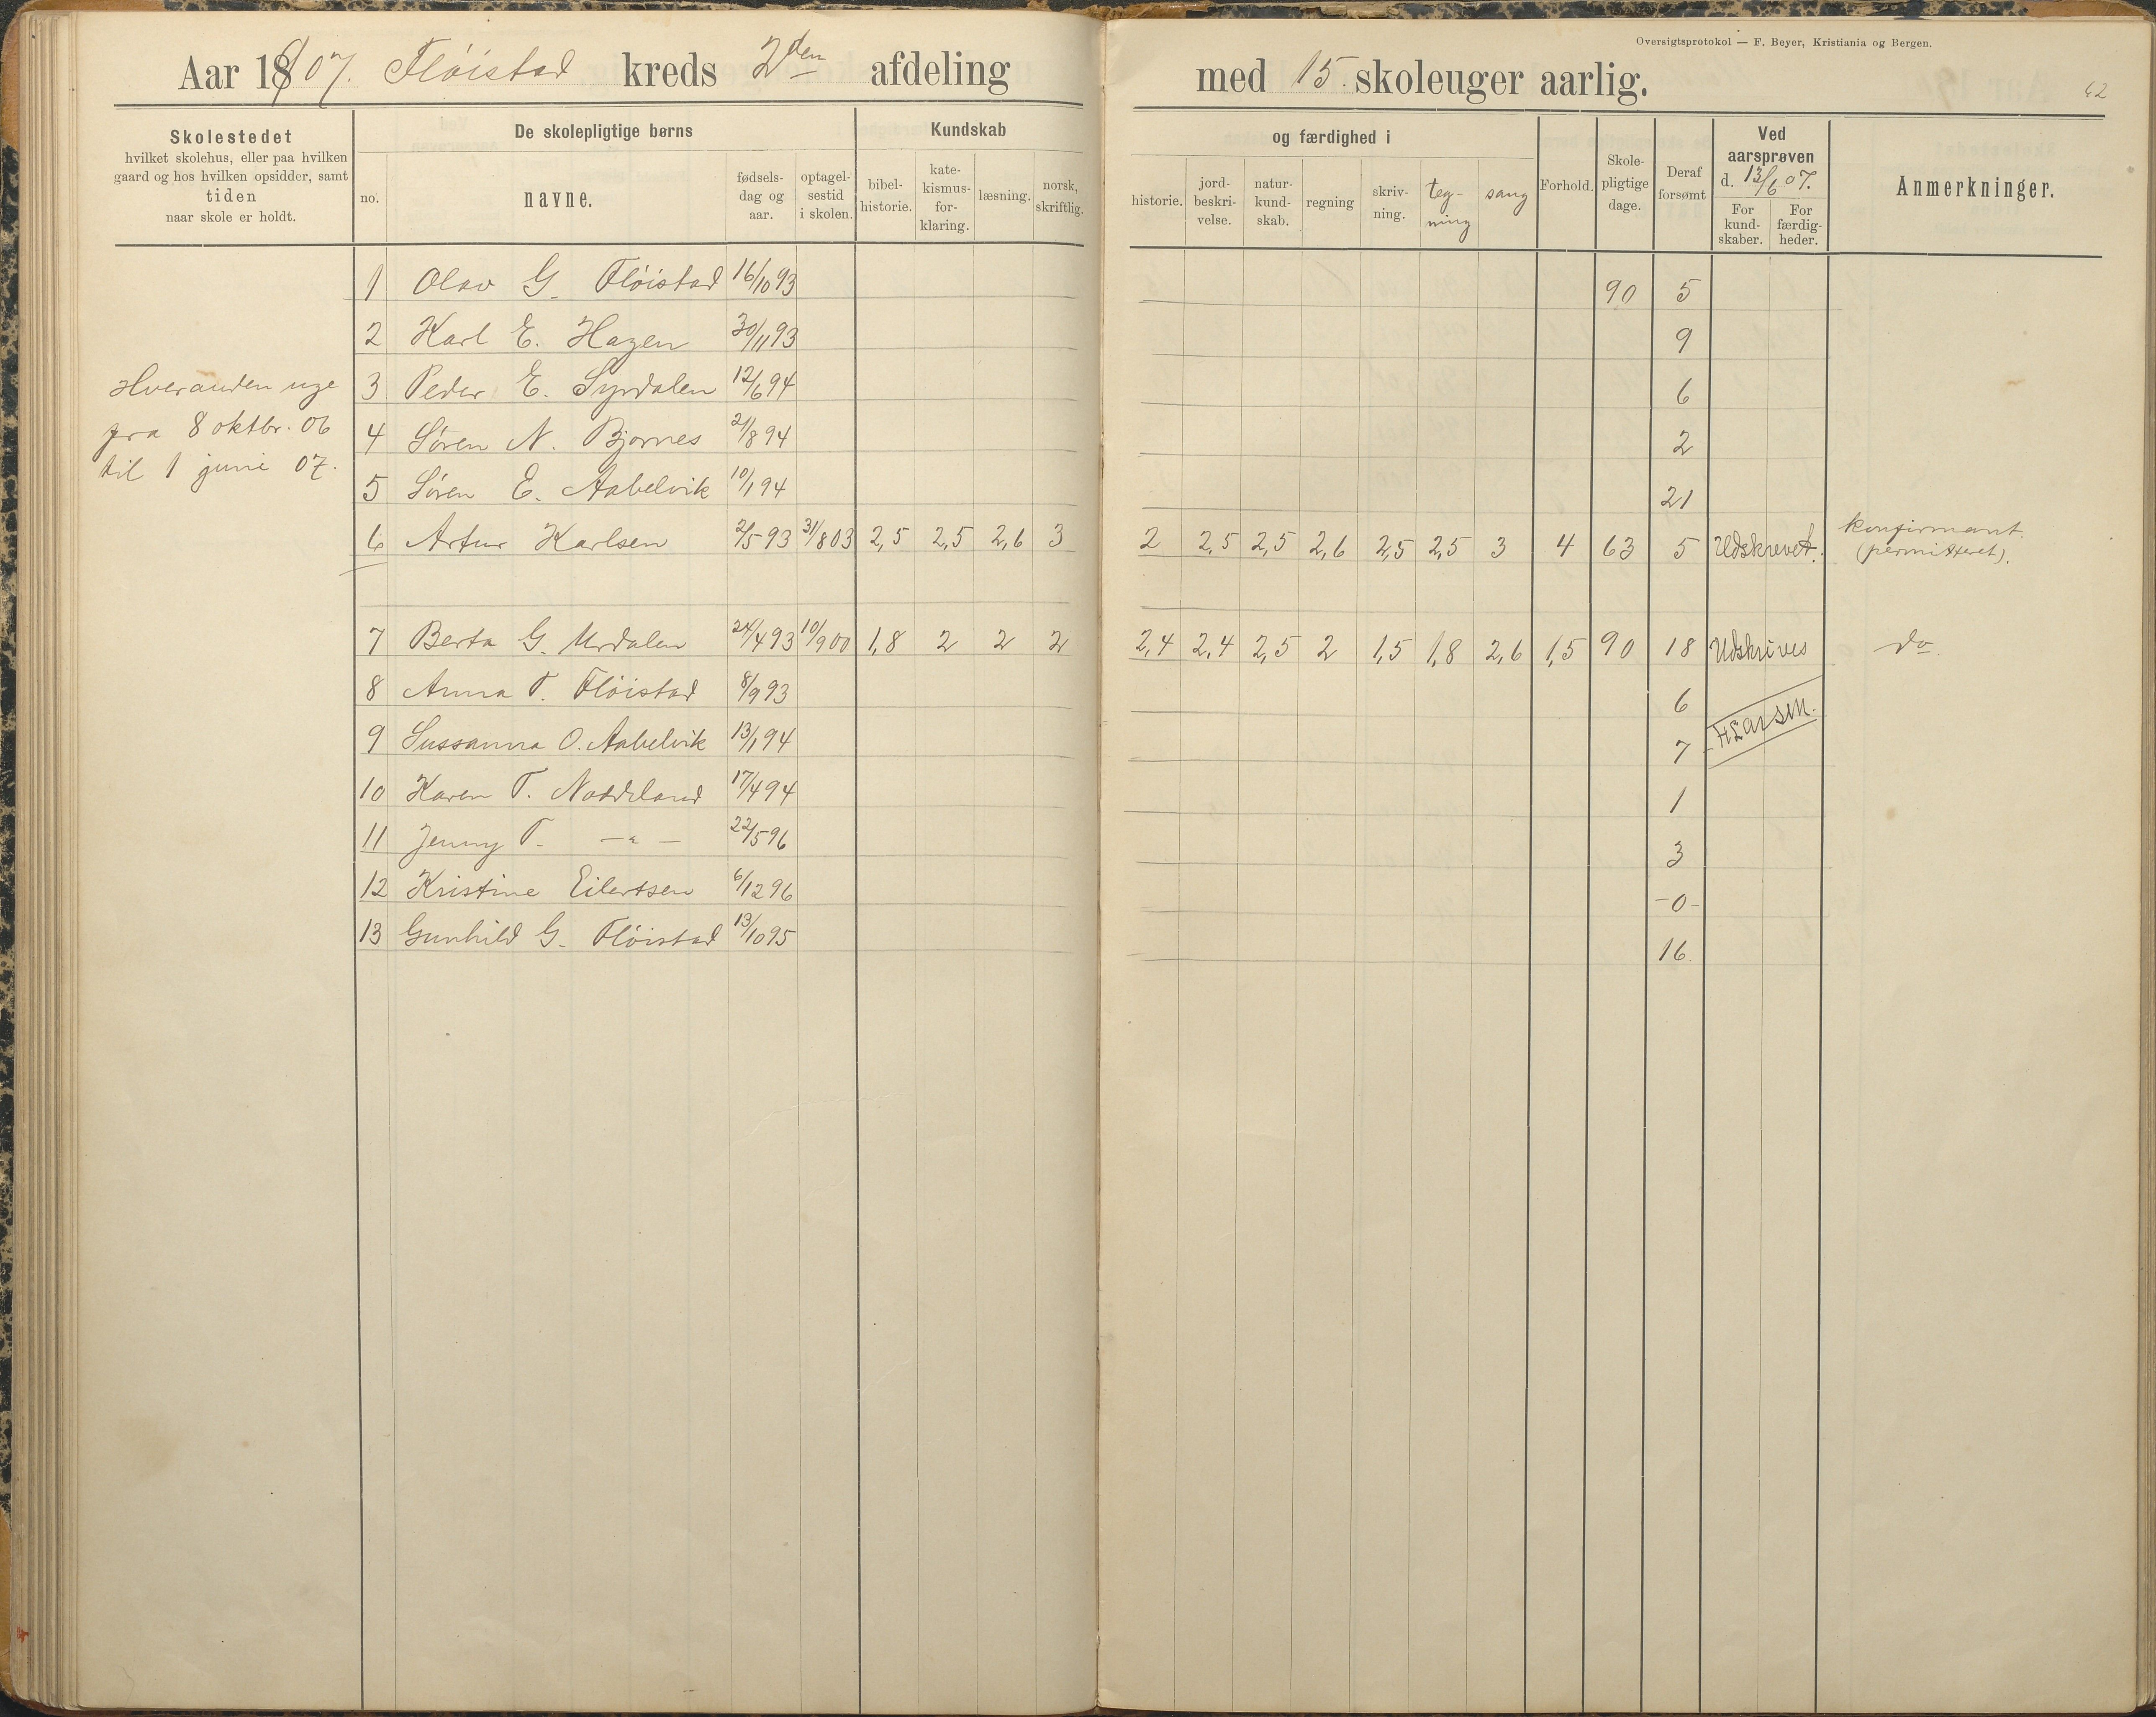 Oversigtsprotokol — F. Beyer, Kristiania og Bergen.
Aar 1907. Fløistad kreds 2den afdeling med 15. skoleuger aarlig.
42
Skolestedet
hvilket skolehus, eller paa hvilken
gaard og hos hvilken opsidder, samt
tiden
naar skole er holdt.
De skolepligtige børns
no.
navne.
fødsels-
dag og
aar.
optagel-
sestid
i skolen.
Kundskab
bibel-
historie.
kate-
kismus-
for-
klaring.
læsning.
norsk,
skriftlig.
og færdighed i
historie.
jord-
beskri-
velse.
natur-
kund-
skab.
regning
skriv-
ning.
teg-
ning
sang
Forhold.
Skole-
pligtige
dage.
Deraf
forsømt
Ved
aarsprøven
d. 13/6 07.
For
kund-
skaber.
For
færdig-
heder.
Anmerkninger.
Hveranden uge
fra 8 oktbr. 06
til 1 juni 07.
1 Olav G. Fløistad 16/10 93 90 5
2 Karl E. Hagen 30/11 93 9
3 Peder E. Syrdalen 12/6 94 6
4 Søren N. Bjornes 21/8 94 2
5 Søren E. Aabelvik 10/1 94 21
6 Artur Karlsen 2/5 93 31/8 03 2,5 2,5 2,6 3 2 2,5 2,5 2,6 2,5 2,5 3 4 63 5 Udskrevet. konfirmant.
(permitteret).
7 Berta G. Urdalen 24/4 93 10/9 00 1,8 2 2 2 2,4 2,4 2,5 2 1,5 1,8 2,6 1,5 90 18 Udskrives do.
8 Anna T. Fløistad 8/9 93 6
9 Sussanna O. Aabelvik 13/1 94 7
HLarsen.
10 Karen T. Noddeland 17/4 94 1
11 Jenny T. — " — 22/5 96 3
12 Kristine Eilertsen 6/12 96 -0-
13 Gunhild G. Fløistad 13/10 95 16.